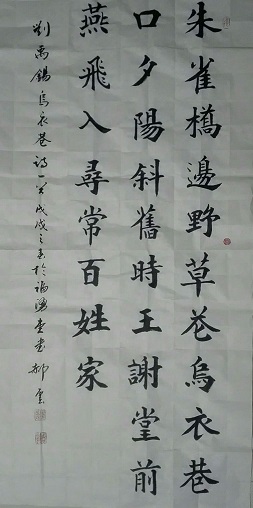 朱雀橋邊野草花烏衣巷
口夕陽斜舊時王謝堂前
燕飛入尋常百姓家
劉禹錫烏衣巷詩一首戊戌之春於福